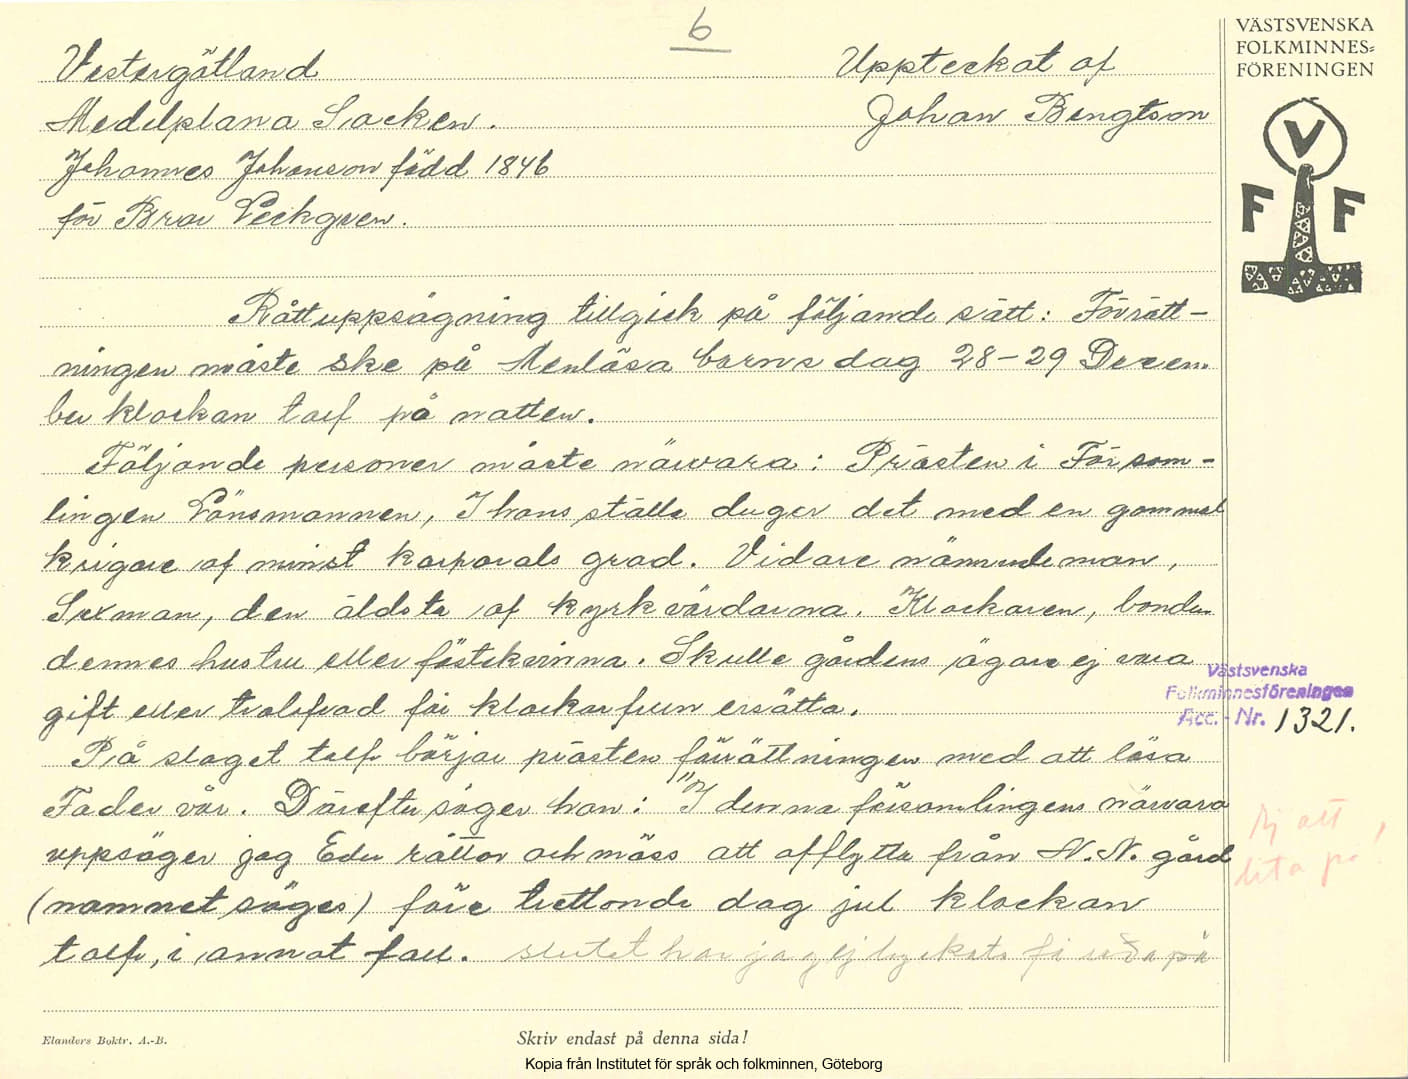 6
VÄSTSVENSKA
FOLKMINNES=
FÖRENINGEN
V
F F
Vestergötland
Uppteckat af
Medelplana Socken.
Johan Bengtson
Johannes Johanson född 1846
för Bror
Råttuppsägning tillgick på följande sätt: Förrätt-
ningen måste ske på Menlösa barns dag 28-29 Decem
ber klockan tolf på natten.
Följande personer måste närvara: Prästen i Försam-
lingen Länsmannen, I hans ställe duger det med en gammal
krigare af minst korporals grad. Vidare nämndeman,
Sexman, den äldsta af kyrkvärdarna. Klockaren, bonden
dennes hustru eller fästekvinna. Skulle gårdens ägare ej vara
gift eller trolofvad får klockarfrun ersätta.
Västsvenska
Folkminnesföreningen
Acc.-Nr. 1321.
På slaget tolf börjar prästen förrättningen med att läsa
Fader vår. Därefter säger han: "I denna församlingens närvaro
uppsäger jag Eder råttor och möss att afflytta från N.N. gård
(namnet säges) före trettonde dag jul klockan
tolf, i annat fall. slutet har jag ej lyckats få reda på
Ej att
lita på!
Elanders Boktr. A.-B.
Skriv endast på denna sida!
Kopia från Institutet för språk och folkminnen, Göteborg